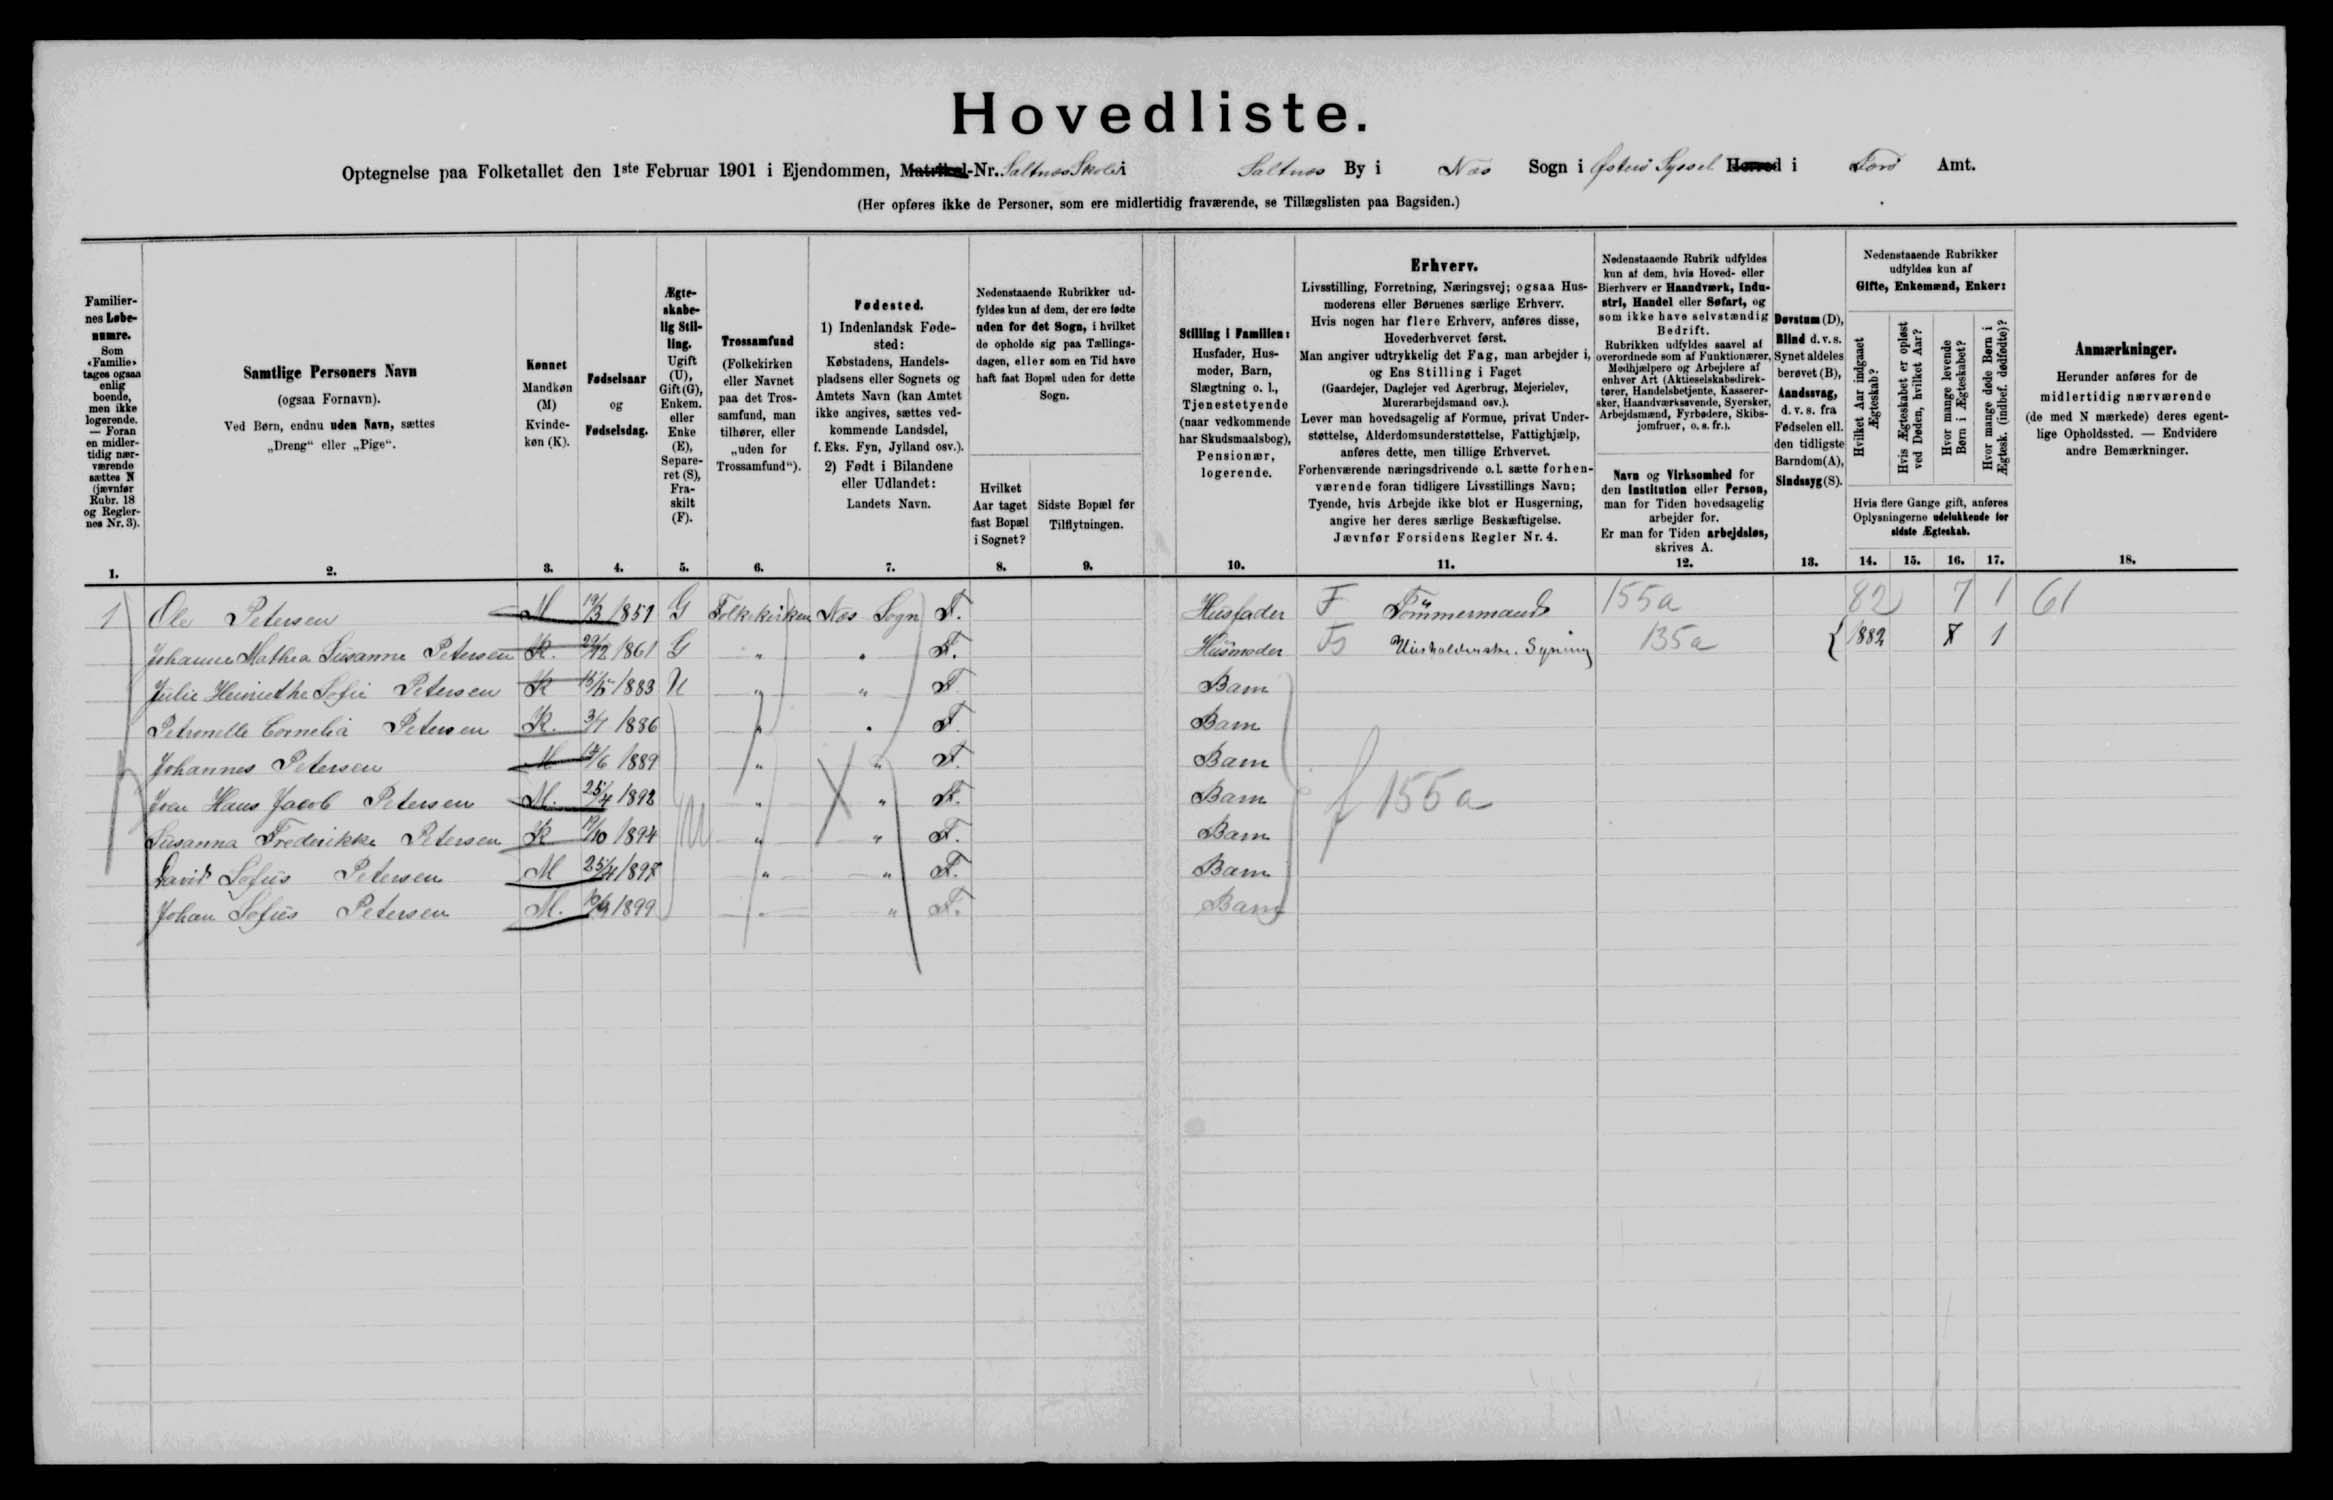 Hovedliste.
Optegnelse paa Folketallet den 1ste Februar 1901 i Ejendommen, Matrikel-Nr. Saltnæs Skole i Saltnæs By i Næs Sogn i Østerø Syssel Herred i Færø Amt.
(Her opføres ikke de Personer, som ere midlertidig fraværende, se Tillægslisten paa Bagsiden.)
Familiernes Løbenumre.
Som «Familie» tages ogsaa enlig boende, men ikke logerende. — Foran en midlertidig nærværende sættes N (jævnfør Rubr. 18 og Reglernes Nr. 3).
1.
Samtlige Personers Navn
(ogsaa Fornavn).
Ved Børn, endnu uden Navn, sættes
„Dreng“ eller „Pige“.
2.
Kønnet
Mandkøn (M)
Kvindekøn (K).
3.
Fødselsaar
og
Fødselsdag.
4.
Ægteskabelig Stilling.
Ugift (U), Gift (G), Enkem. eller Enke (E), Separeret (S), Fraskilt (F).
5.
Trossamfund
(Folkekirken eller Navnet paa det Trossamfund, man tilhører, eller „uden for Trossamfund“).
6.
Fødested.
1) Indenlandsk Fødested:
Købstadens, Handelspladsens eller Sognets og Amtets Navn (kan Amtet ikke angives, sættes vedkommende Landsdel, f. Eks. Fyn, Jylland osv.).
2) Født i Bilandene eller Udlandet:
Landets Navn.
7.
Nedenstaaende Rubrikker udfyldes kun af dem, der ere fødte uden for det Sogn, i hvilket de opholde sig paa Tællingsdagen, eller som en Tid have haft fast Bopæl uden for dette Sogn.
Hvilket Aar taget fast Bopæl i Sognet?
8.
Sidste Bopæl før Tilflytningen.
9.
Stilling i Familien:
Husfader, Husmoder, Barn, Slægtning o. l., Tjenestetyende (naar vedkommende har Skudsmaalsbog), Pensionær, logerende.
10.
Erhverv.
Livsstilling, Forretning, Næringsvej; ogsaa Husmoderens eller Børnenes særlige Erhverv.
Hvis nogen har flere Erhverv, anføres disse, Hovederhvervet først.
Man angiver udtrykkelig det Fag, man arbejder i, og Ens Stilling i Faget
(Gaardejer, Daglejer ved Agerbrug, Mejerielev, Murerarbejdsmand osv.).
Lever man hovedsagelig af Formue, privat Understøttelse, Alderdomsunderstøttelse, Fattighjælp, anføres dette, men tillige Erhvervet.
Forhenværende næringsdrivende o. l. sætte forhenværende foran tidligere Livsstillings Navn;
Tyende, hvis Arbejde ikke blot er Husgerning, angive her deres særlige Beskæftigelse.
Jævnfør Forsidens Regler Nr. 4.
11.
Nedenstaaende Rubrik udfyldes kun af dem, hvis Hoved- eller Bierhverv er Haandværk, Industri, Handel eller Søfart, og som ikke have selvstændig Bedrift.
Rubrikken udfyldes saavel af overordnede som af Funktionærer, Medhjælpere og Arbejdere af enhver Art (Aktieselskabsdirektører, Handelsbetjente, Kasserersker, Haandværkssvende, Syersker, Arbejdsmænd, Fyrbødere, Skibsjomfruer, o. s. fr.).
Navn og Virksomhed for den Institution eller Person, man for Tiden hovedsagelig arbejder for.
Er man for Tiden arbejdsløs, skrives A.
12.
Døvstum (D), Blind d. v. s. Synet aldeles berøvet (B), Aandssvag, d. v. s. fra Fødselen ell. den tidligste Barndom (A), Sindssyg (S).
13.
Nedenstaaende Rubrikker udfyldes kun af
Gifte, Enkemænd, Enker:
Hvilket Aar indgaaet Ægteskab?
Hvis Ægteskabet er opløst ved Døden, hvilket Aar?
Hvor mange levende Børn i Ægteskabet?
Hvor mange døde Børn i Ægtesk. (indbef. dødfødte)?
Hvis flere Gange gift, anføres Oplysningerne udelukkende for sidste Ægteskab.
14. 15. 16. 17.
Anmærkninger.
Herunder anføres for de midlertidig nærværende (de med N mærkede) deres egentlige Opholdssted. — Endvidere andre Bemærkninger.
18.
1 Ole Petersen M 19/3 1851 G Folkekirken Næs Sogn F. Husfader F Tømmermand 155a 82 7 1 61
Johanne Mathea Susanne Petersen K. 29/12 1861 G " " F. Husmoder Husholderske. Syning 135a { 1882 1
Julie Henriethe Sofie Petersen K 1883 U " " F Barn
Petronelle Cornelia Petersen K. 1886 " " F. Barn
Johannes Petersen M 1889 " " F. Barn
Hans Jacob Petersen M. 25/4 1892 " " F. Barn f 155a
Susanna Frederikke Petersen K 19/10 1894 " " F. Barn
David Sofus Petersen M 25/4 1897 " " F. Barn
Johan Sofus Petersen M. 1899 " " F. Barn